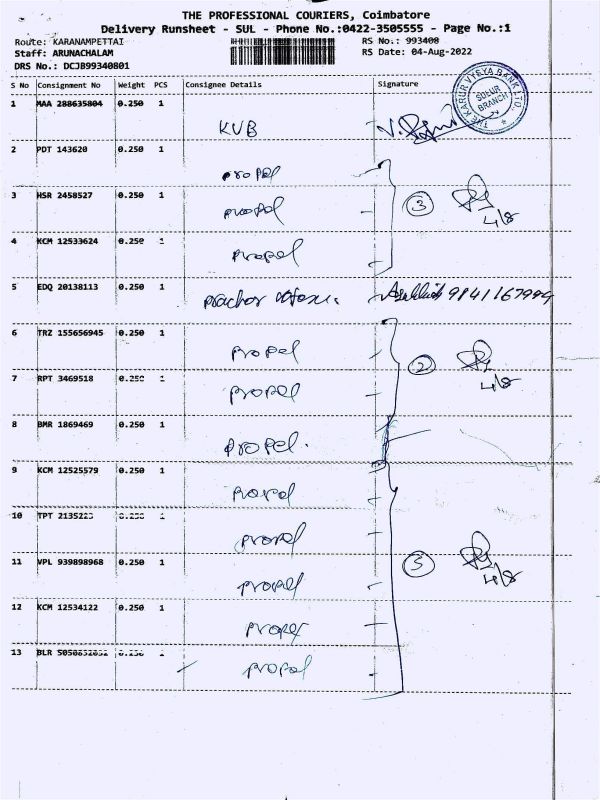 THE PROFESSIONAL COURIERS, Coimbatore
Delivery Runsheet - SUL - Phone No.:0422-3505555 - Page No.:1
Route: KARANAMPETTAI RS No.: 993408
Staff: ARUNACHALAM RS Date: 04-Aug-2022
DRS No.: DCJB99340801
S No Consignment No Weight PCS Consignee Details Signature
1 MAA 288635804 0.250 1 KVB
THE KARUR VYSYA BANK LTD.
SULUR BRANCH
2 PDT 143620 0.250 1 propel
3 HSR 2458527 0.250 1 propel 3 4/8
4 KCM 12533624 0.250 1 propel
5 EDQ 20138113 0.250 1 9841167999
6 TRZ 155656945 0.250 1 propel 2 4/8
7 RPT 3469518 0.250 1 propel
8 BMR 1869469 0.250 1 propel.
9 KCM 12525579 0.250 1 propel
10 TPT 2135223 0.250 1 propel
11 VPL 939898968 0.250 1 propel 5 4/8
12 KCM 12534122 0.250 1 propel
13 BLR 0.250 1 propel